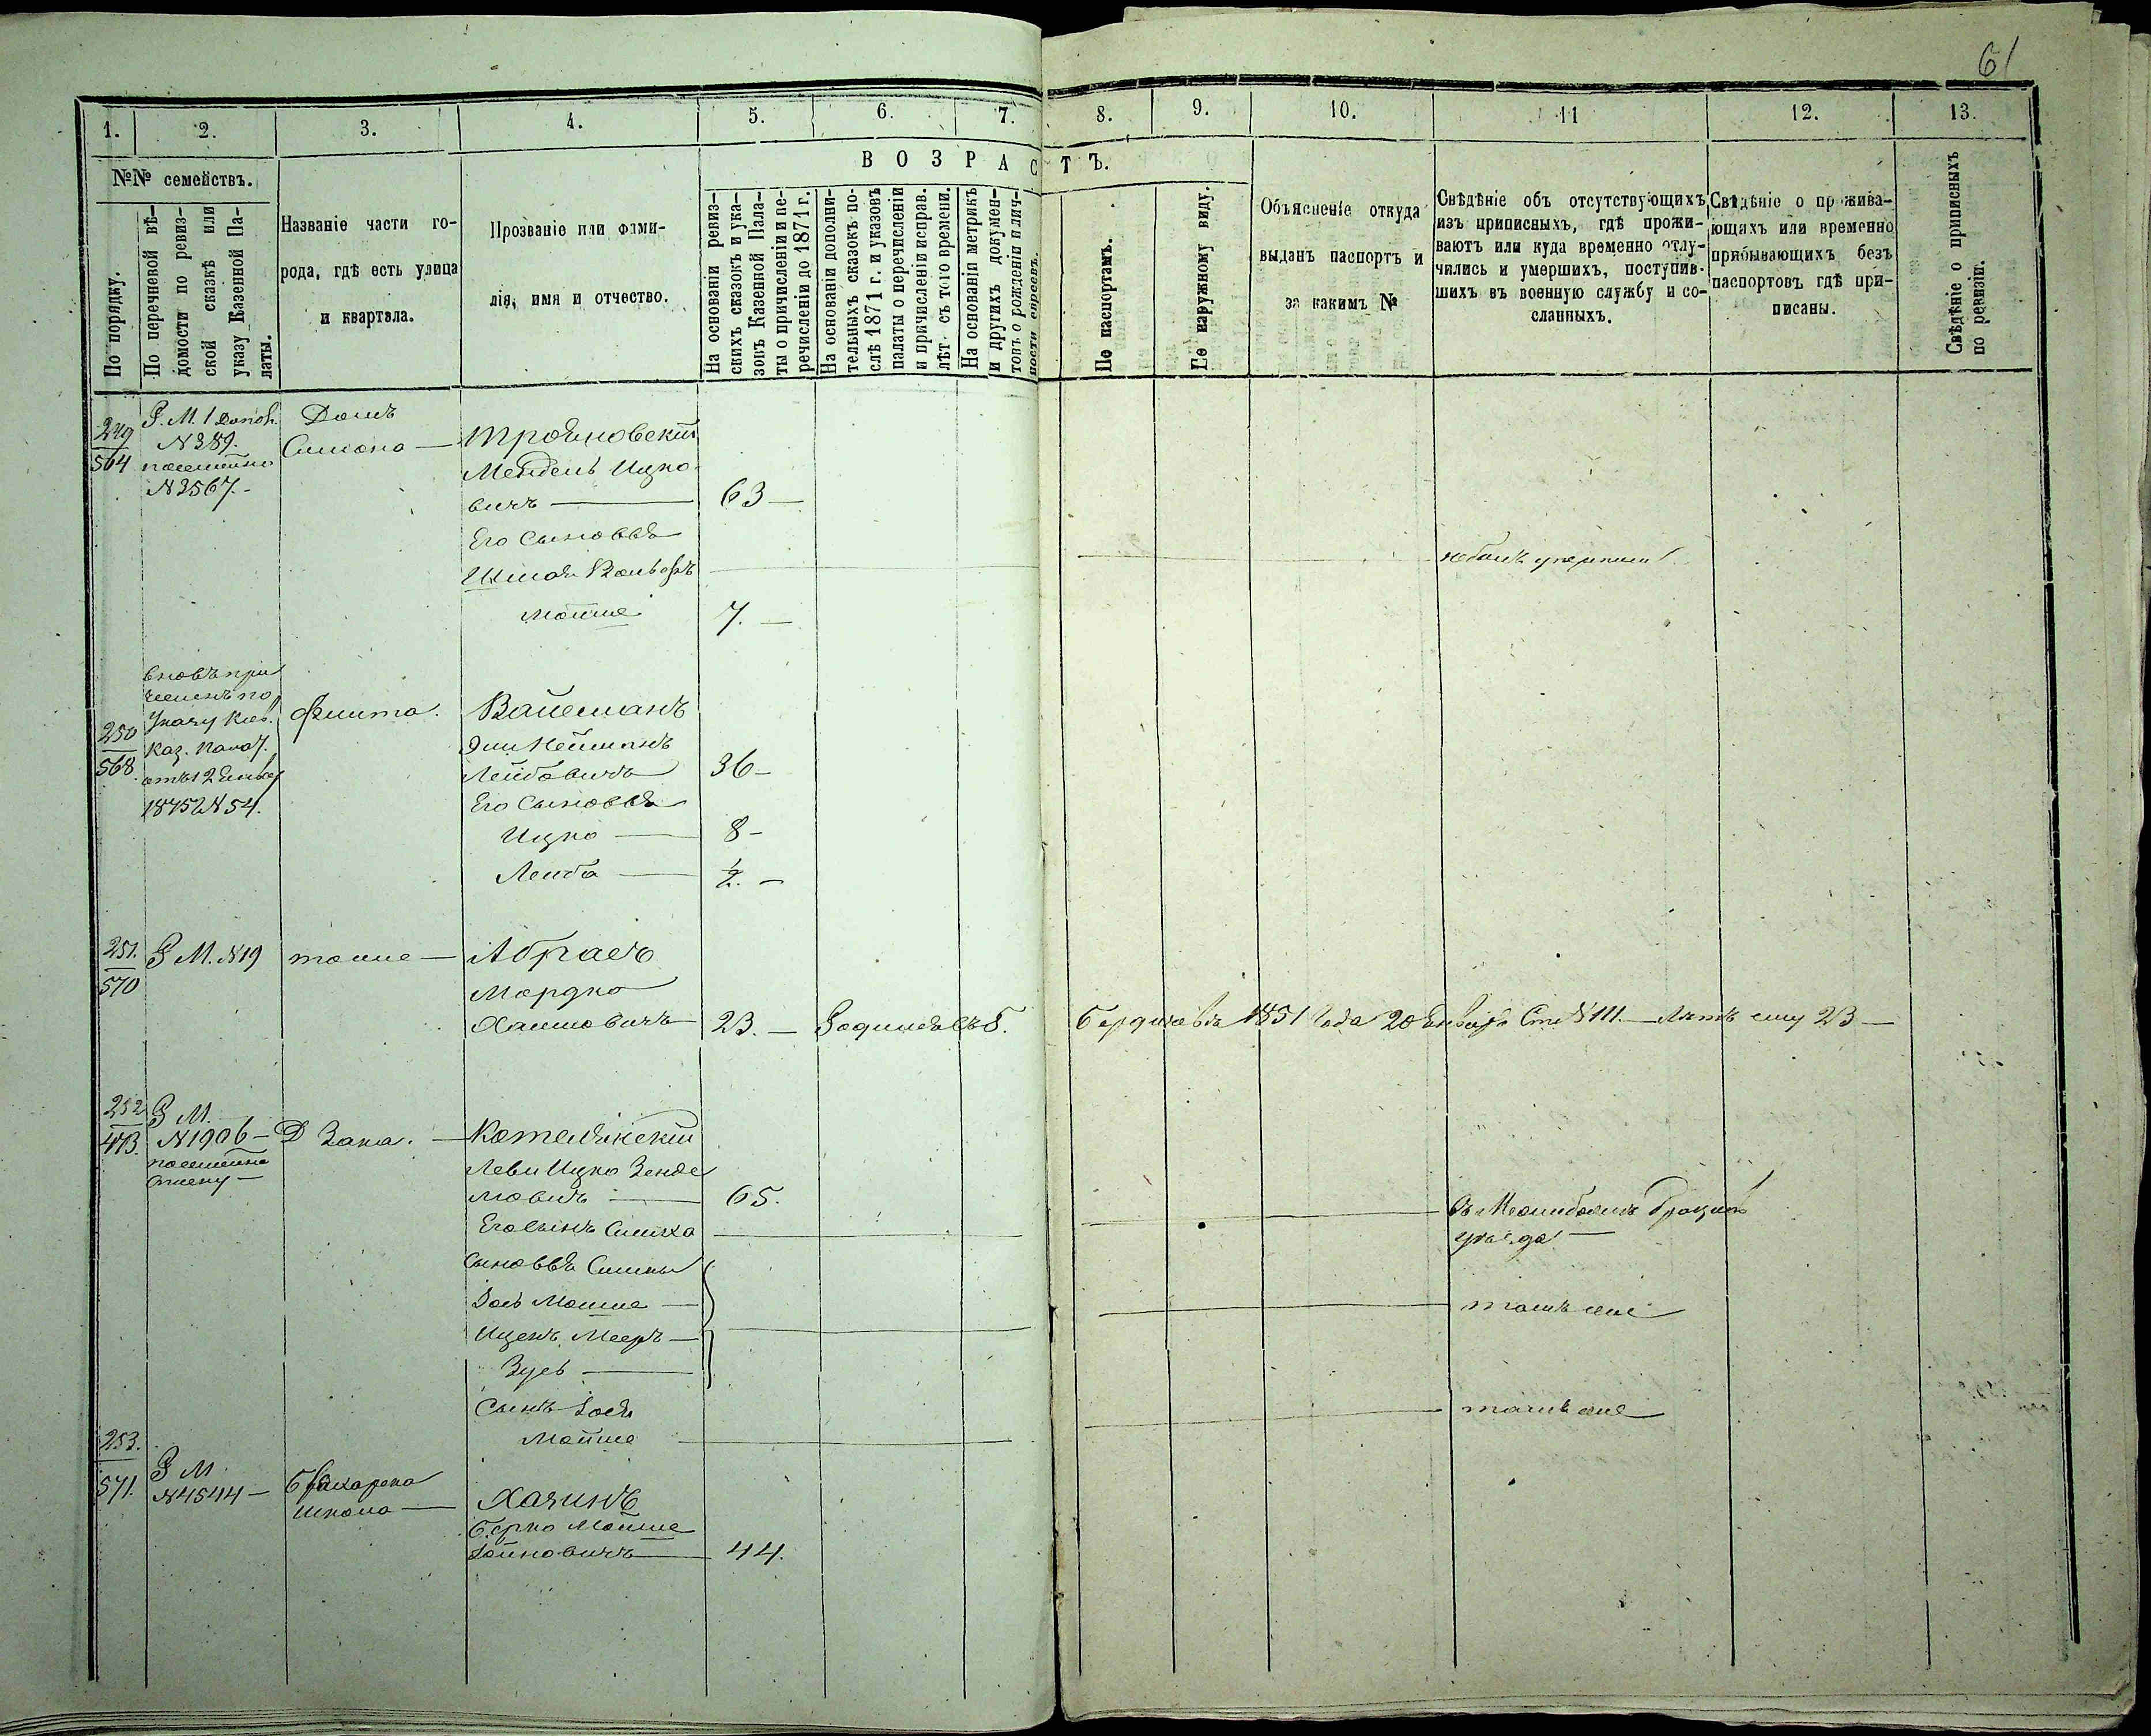 61
1. 2. 3. 4. 5. 6. 7. 8. 9. 10. 11 12. 13.
№№ семействъ.
По порядку.
По перечневой вѣ-
домости по ревиз-
ской сказкѣ или
указу Казенной Па-
латы.
Названіе части го-
рода, гдѣ есть улица
и квартала.
Прозваніе или фами-
лія, имя и отчество.
ВОЗРАСТЪ.
На основаніи ревиз-
скихъ сказокъ и ука-
зовъ Казенной Пала-
ты о причисленіи и пе-
речисленіи до 1871 г.
На основаніи дополни-
тельныхъ сказокъ по-
слѣ 1871 г. и указовъ
палаты о перечисленіи
и причисленіи исправ.
лѣт. съ того времени.
На основаніи метрикъ
и другихъ докумен-
товъ о рожденіи и лич-
ности евреевъ.
По паспортамъ.
По наружному виду.
Объясненіе откуда
выданъ паспортъ и
за какимъ №
Свѣдѣніе объ отсутствующихъ
изъ приписныхъ, гдѣ прожи-
ваютъ или куда временно отлу-
чились и умершихъ, поступив-
шихъ въ военную службу и со-
сланныхъ.
Свѣдѣніе о прожива-
ющихъ или временно
прибывающихъ безъ
паспортовъ гдѣ при-
писаны.
Свѣдѣніе о приписныхъ
по ревизіи.
249
564
Р. М. 1 Допол.
N 389.
посемейно
N 3567.
Домъ
Трояновскій
Мендель Ицко-
вичъ — 63 —
Его сыновья
Мошие 7. —
250
568
вновь при
численъ по
Указу Кіев.
Каз. Палат.
отъ 12 Январ
1875 N 54.
Вайсманъ
Лейбовичъ 36 —
Его сыновья
Ицко — 8 —
Лейба — ½. —
251.
570
Р М. N 19
тоже —
Абрасъ
Мордко
Хаимовичъ 23. — Родился въ г. Бердичевѣ 1851 года 20 Января Ст. N 111. — Лѣтъ ему 23 —
252
473.
Р М.
N 1906 —
посемейно
Д Зака. —
Леви Ицко Зенде
лювичъ — 65.
Его сынъ Симха
сыновья Симхи
Іось Мошие —
Иценъ Мееръ —
Зусь —
тамъ же
Сынъ Іося
Мошие
тамъ же
253.
571.
Р М
N 4544 —
школа —
Хазинъ
Берко Мошие
Іойновичъ — 44.